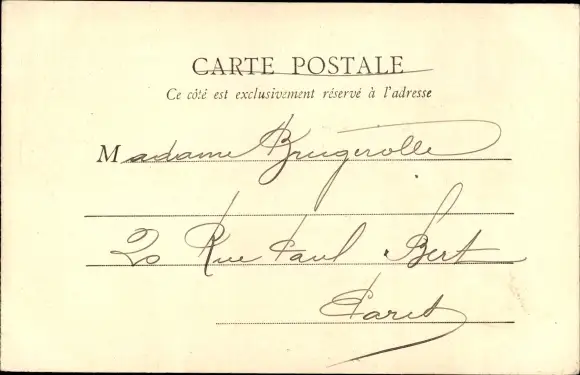 CARTE POSTALE
Ce côté est exclusivement réservé à l'adresse
Madame Brugerolle
20 Rue Paul Bert
Paris